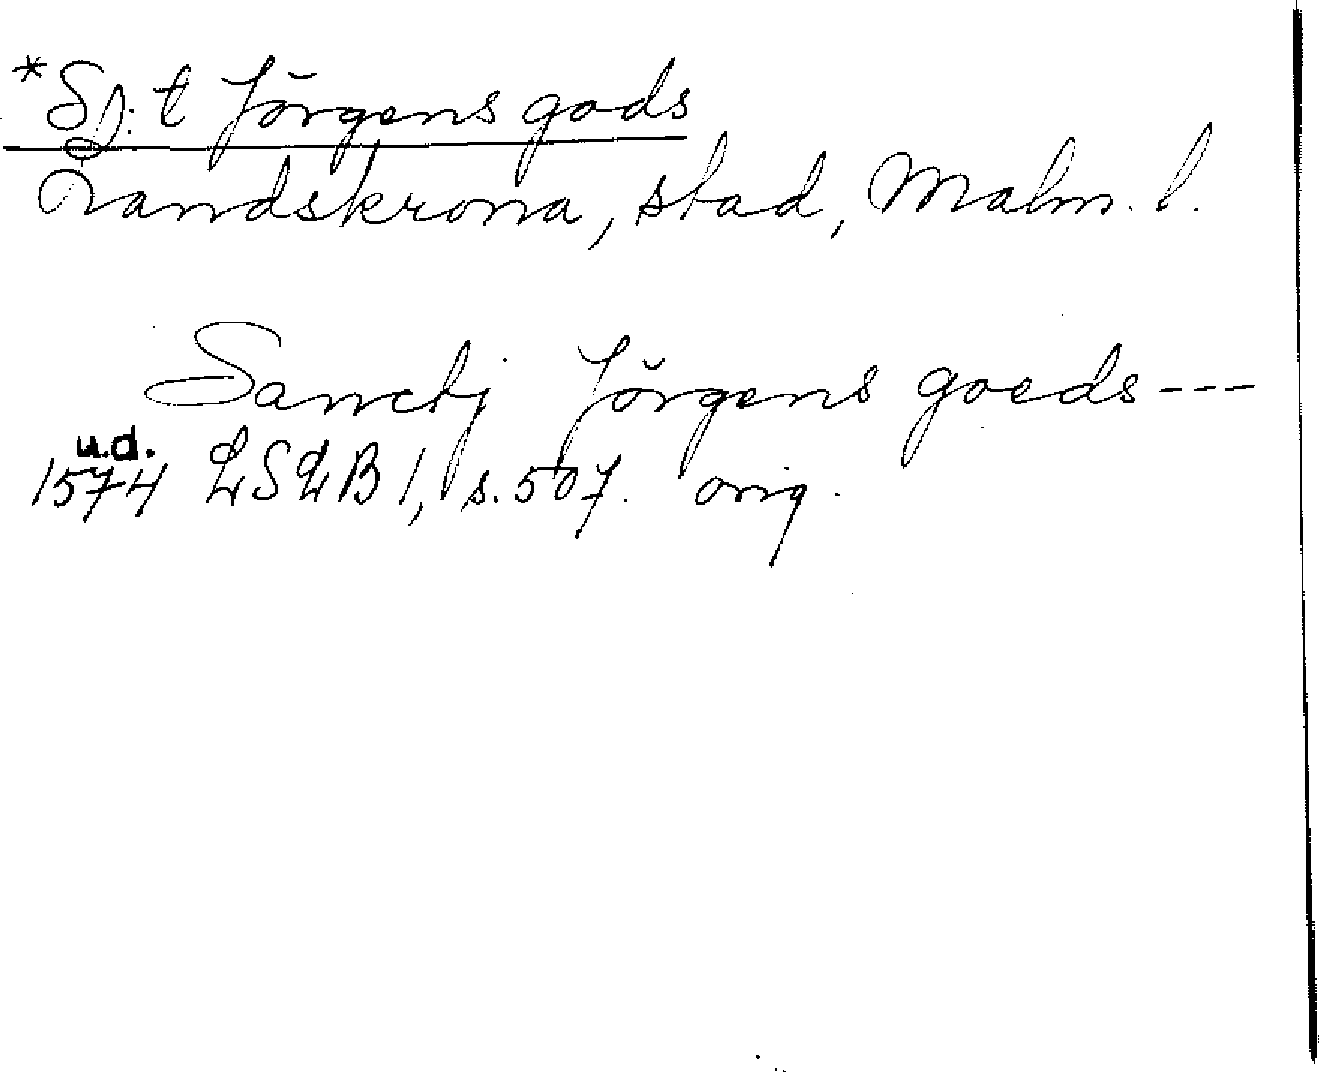 *S:t Jörgens gods
Landskrona, stad, Malm. l.
Sanctj Jörgens goeds---
u.d.
1574 LSLB 1, s. 507. orig.